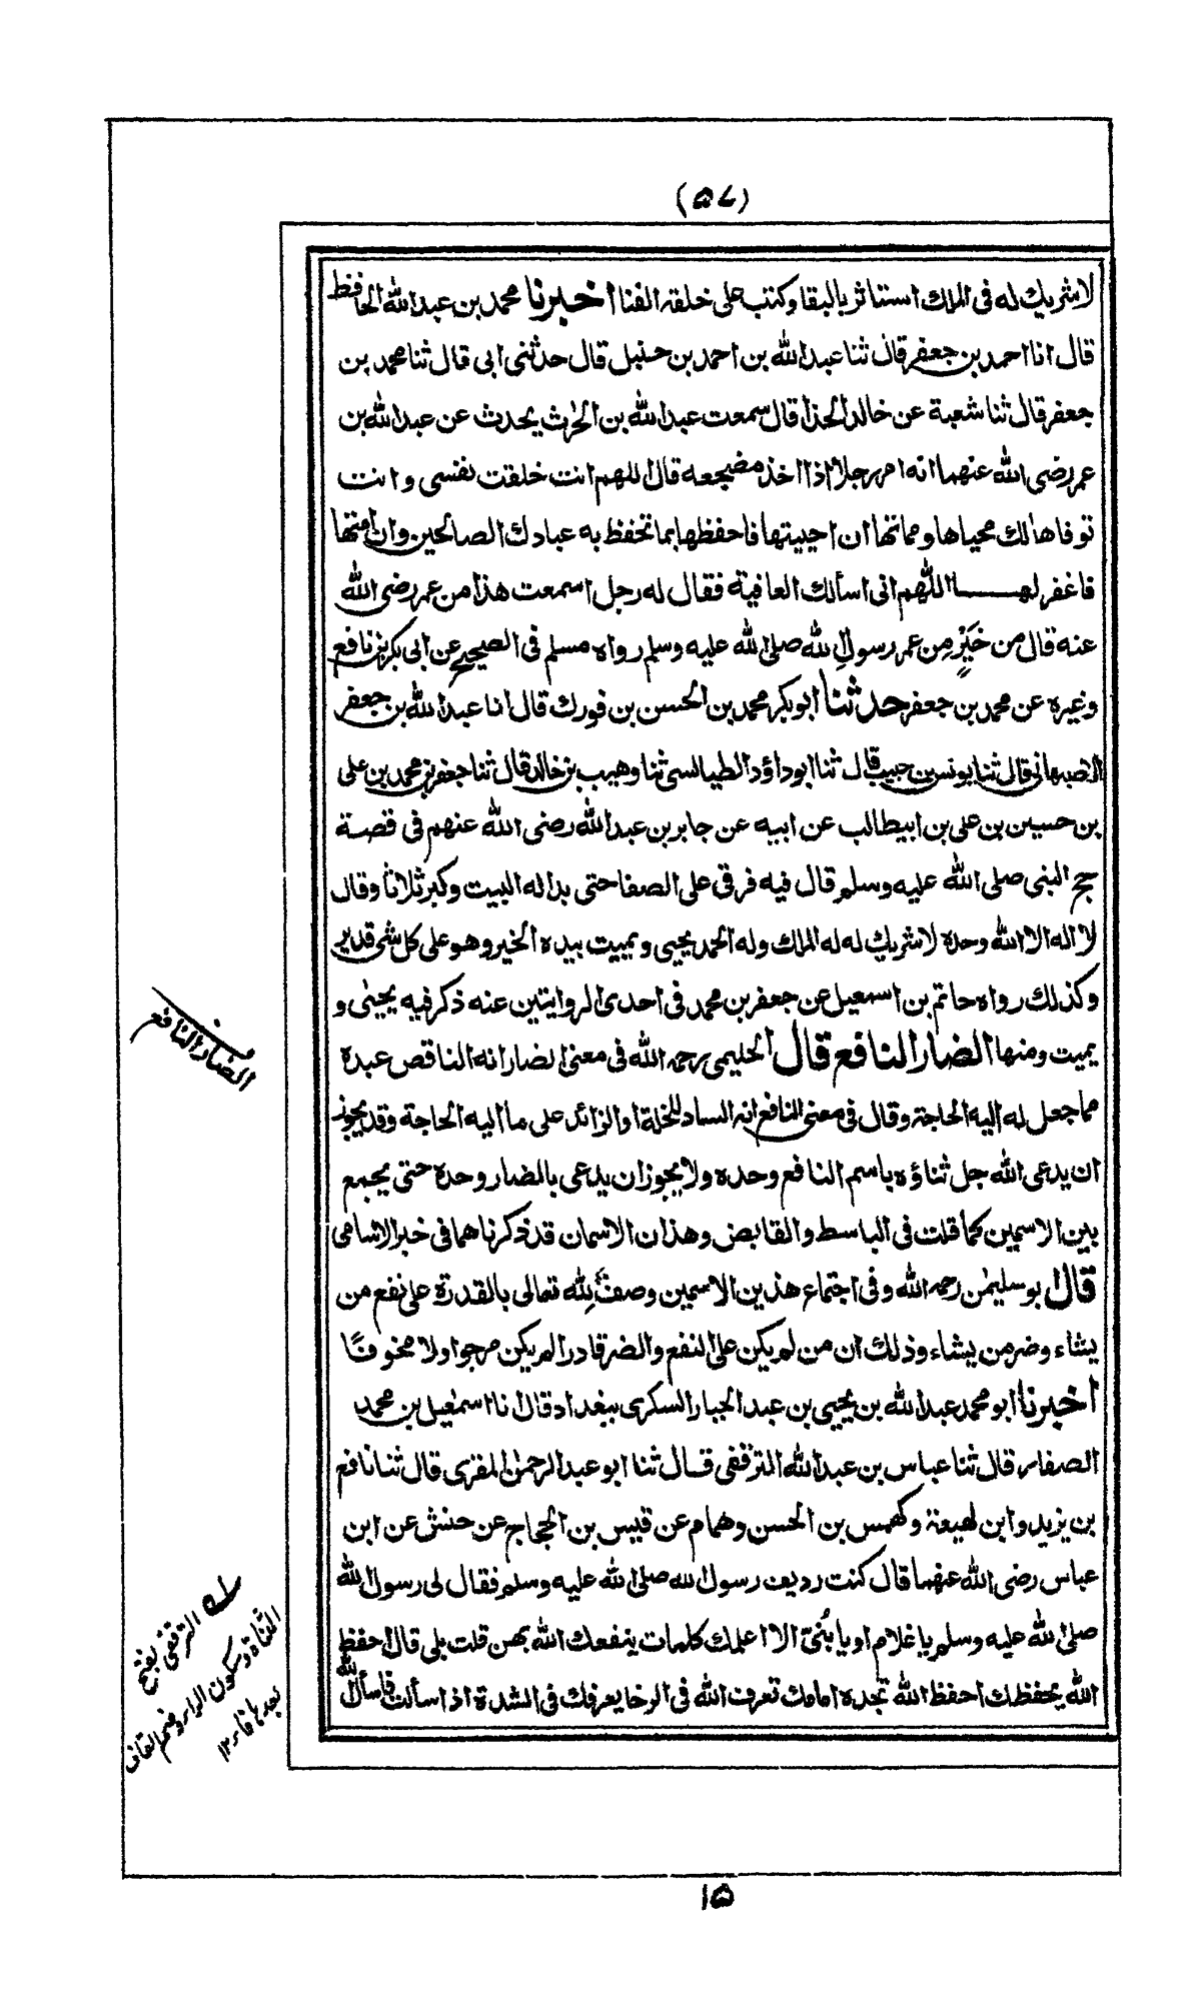 (۵۷)
لاشريك له فى الملك استناثر بالبقا وكتب على خلقه الفنا اخبرنا محمد بن عبد الله الحافظ
قال انا احمد بن جعفر قال ثنا عبد الله بن احمد بن حنبل قال حدثنى ابى قال ثنا محمد بن
جعفر قال ثنا شعبة عن خالد الحذا قال سمعت عبد الله بن الحٰرث يحدث عن عبد الله بن
عمر رضى الله عنهما انه امر رجلا اذا اخذ مضجعه قال اللهم انت خلقت نفسى و انت
توفاها لك محياها ومماتها ان احييتها فاحفظها بما تحفظ به عبادك الصالحين وان امتها
فاغفر لها اللّٰهم انى اسألك العافية فقال له رجل اسمعت هذا من عمر رضى الله
عنه قال من خَيْرٍ مِن عمر رسولِ الله صلى الله عليه وسلم رواه مسلم فى الصحيح عن ابى بكر بن نافع
وغيره عن محمد بن جعفر حدثنا ابوبكر محمد بن الحسن بن فورك قال انا عبد الله بن جعفر
الاصبهانى قال ثنا يونس بن حبيب قال ثنا ابوداؤد الطيالسى ثنا وهيب بن خالد قال ثنا جعفر بن محمد بن على
بن حسين بن على بن ابيطالب عن ابيه عن جابر بن عبد الله رضى الله عنهم فى قصة
حج النبى صلى الله عليه وسلم قال فيه فرقى على الصفا حتى بدا له البيت وكبر ثلاثا وقال
لا اله الا الله وحده لاشريك له له الملك وله الحمد يحيى ويميت بيده الخير وهو على كل شئ قدير
وكذلك رواه حاتم بن اسمعيل عن جعفر بن محمد فى احدى الروايتين عنه ذكر فيه يحيى و
يميت ومنها الضار النافع قال الحليمى رحمه الله فى معنى الضار انه الناقص عبده
مما جعل له اليه الحاجة وقال فى معنى النافع انه الساد للخلة او الزائد على ما اليه الحاجة وقد يجوز
ان يدعى الله جل ثناؤه باسم النافع وحده ولا يجوز ان يدعى بالضار وحده حتى يجمع
بين الاسمين كما قلت فى الباسط والقابض وهذان الاسمان قد ذكرناهما فى خبر الاسامى
قال بو سليمٰن رحمه الله وفى اجتماع هذين الاسمين وصف لله تعالى بالقدرة على نفع من
يشاء وضر من يشاء وذلك ان من لم يكن على النفع والضر قادرا لم يكن مرجوا ولا مخوفًا
اخبرنا ابو محمد عبد الله بن يحيى بن عبد الجبار السكرى ببغداد قال انا اسمٰعيل بن محمد
الصفار قال ثنا عباس بن عبد الله الترقفى قال ثنا ابو عبد الرحمٰن المقرى قال ثنا نافع
بن يزيد وابن لهيعة وكهمس بن الحسن وهمام عن قيس بن الحجاج عن حنش عن ابن
عباس رضى الله عنهما قال كنت رديف رسول الله صلى الله عليه وسلم فقال لى رسول الله
صلى الله عليه وسلم يا غلام او يا بُنىّ الا اعلمك كلمات ينفعك الله بهن قلت بلى قال احفظ
الله يحفظك احفظ الله تجده امامك تعرف الله فى الرخا يعرفك فى الشدة اذا سألت فاسأل الله
الضار النافع
له الترقفى بفتح
المثناة وسكون الراء وضم القاف
بعدها فاء ۱۲
۱۵